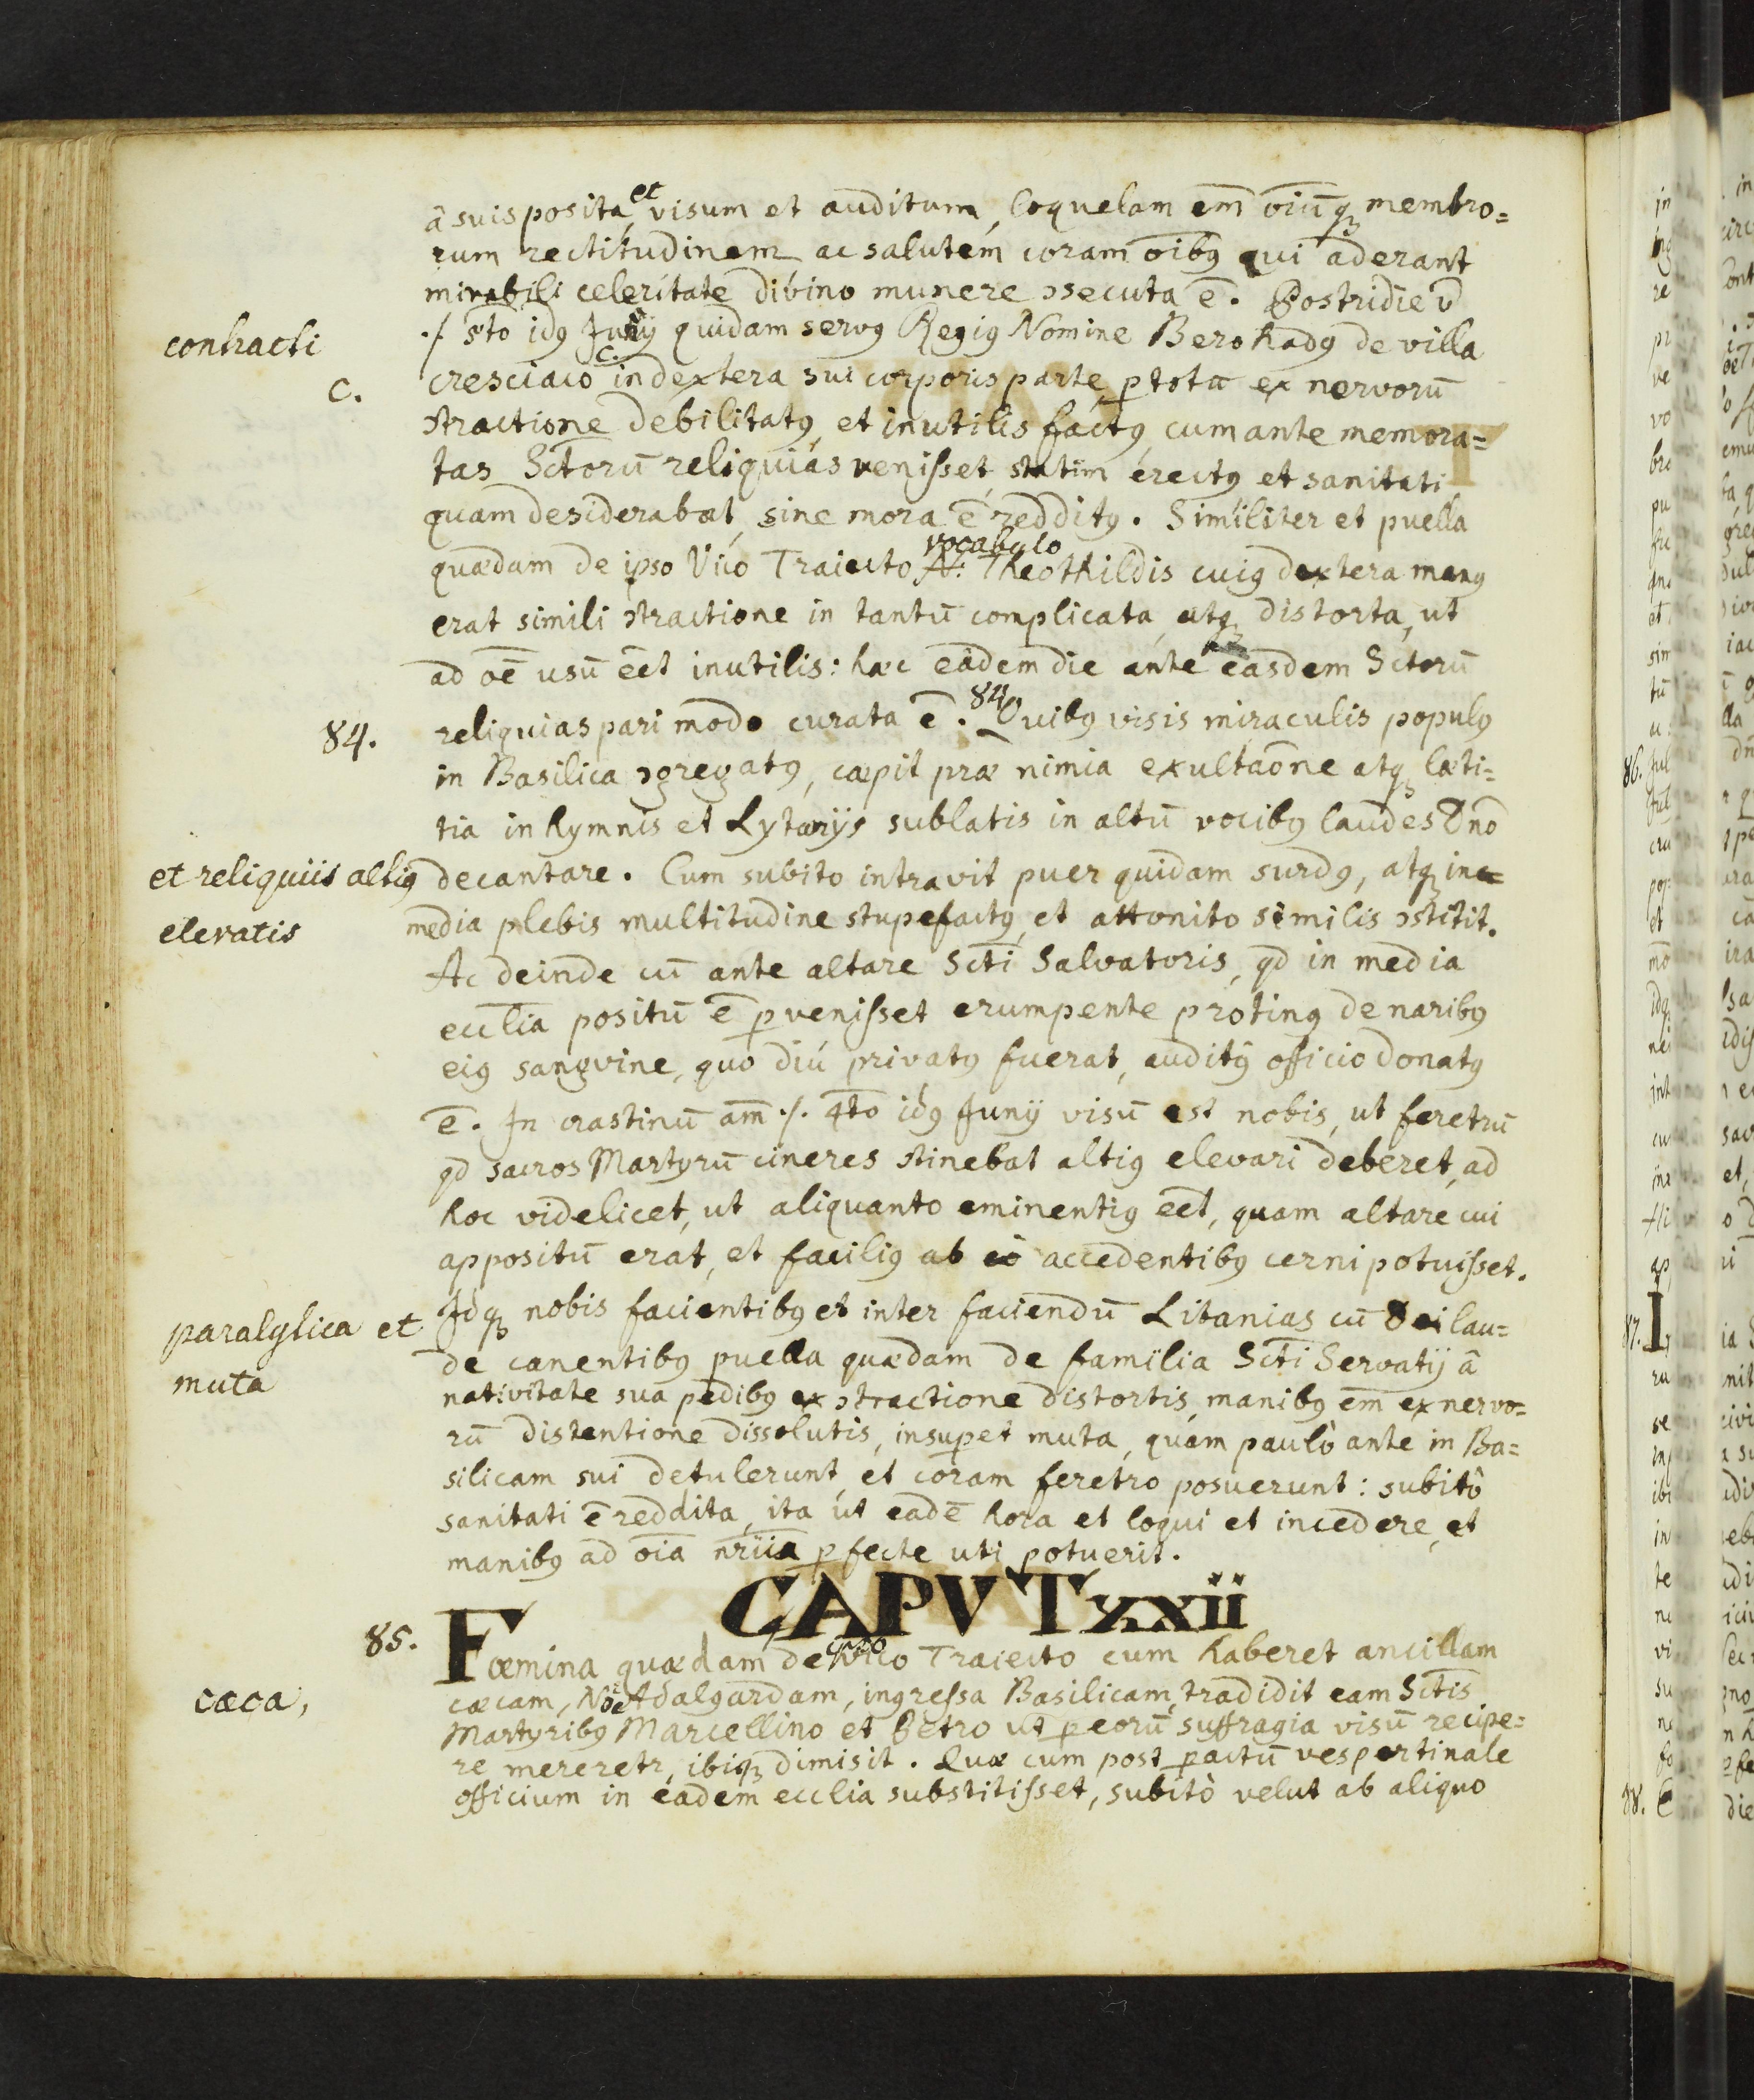 et
â suis posita, visum et auditum, loquelam em̄ oīuq̄ꝫ membro=
rum rectitudinem ac salutem coram oībꝰ qui aderant
mirabili celeritate divino munere ↄsecuta ē. Postridie v̄
contracti
./. 5to idꝰ Junij quidam servꝰ Regiꝰ Nomine Berohadꝰ de villa
c.
c. cresciaco in dextera sui corporis parte, ꝑ totā ex nervorū
ↄtractione debilitatꝰ, et inutilis factꝰ, cum ante memora=
tas Sctorū reliquias venisset, statim erectꝰ et sanitati
quam desiderabat, sine mora ē redditꝰ. Similiter et puella
vocabulo
quædam de ipso Vico Traiecto N: Theothildis cuiꝰ dextera manꝰ
erat simili ↄtractione in tantū complicata, atqꝫ distorta, ut
ad oē usū eēt inutilis: hæc eâdem die ante easdem Sctorū
84
84. reliquias pari modo curata ē. Quibꝰ visis miraculis populꝰ
in Basilica ↄgregatꝰ, cæpit præ nimia exultaōne atqꝫ læti=
tia in hymnis et Lytanijs sublatis in altū vocibꝰ laudes Dn̄o
et reliquiis altiꝰ decantare. Cum subito intravit puer quidam surdꝰ, atqꝫ in
elevatis
media plebis multitudine stupefactꝰ, et attonito similis ↄstitit.
Ac deinde cū ante altare Scti Salvatoris, qd in media
eccl̄ia positū ē ꝑvenisset erumpente protinꝰ de naribꝰ
eiꝰ sangvine, quo diú privatꝰ fuerat, auditꝰ officio donatꝰ
ē. In crastinū am̄ ./. 4to idꝰ Junij visū est nobis, ut feretrū
qd sacros Martyrū cineres ↄtinebat altiꝰ elevari deberet, ad
hoc videlicet, ut aliquanto eminentiꝰ eēt, quam altare cui
appositū erat, et faciliꝰ ab accedentibꝰ cerni potuisset.
Idqꝫ nobis facientibꝰ et inter faciendū Litanias cū Dei lau=
paralytica et
de canentibꝰ puella quædam de familia Scti Servatij â
muta
nativitate sua pedibꝰ ex ↄtractione distortis, manibꝰ em̄ ex nervo=
rū distentione dissolutis, insuper muta, quam paulò ante in Ba=
silicam sui detulerunt, et coram feretro posuerunt: subitô
sanitati ē reddita, ita ut eadē hora et loqui et incedere, et
manibꝰ ad oīa nr̄iia ꝑfecte uti potuerit.
CAPVT xxii
85. Fœmina quædam de ipso vico Traiecto cum haberet ancillam
cæca, cæcam, Nōe Adalgardam, ingressa Basilicam, tradidit eam Sctis
Martyribꝰ Marcellino et Petro ut ꝑ eorū suffragia visū recipe=
re mereretr, ibiqꝫ dimisit. Quæ cum post ꝑactū vespertinale
officium in eadem ecclia substitisset, subitò velut ab aliquo